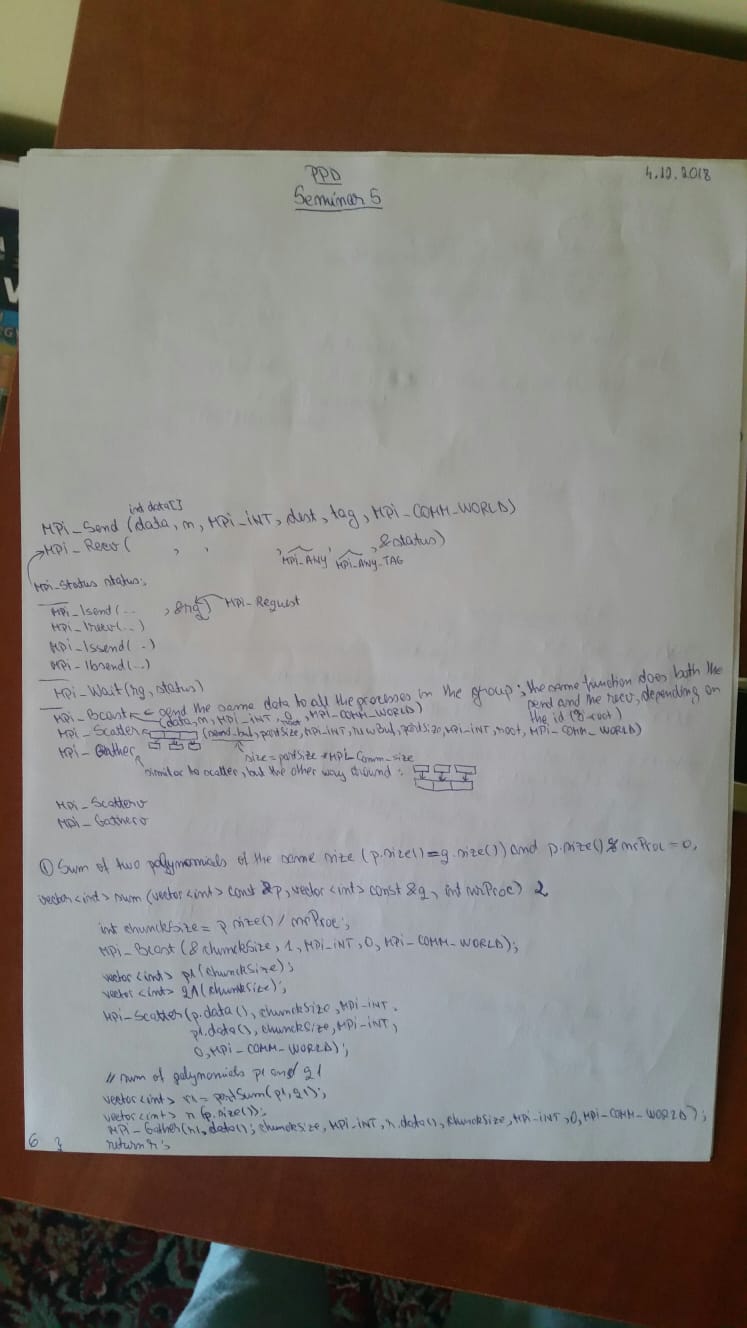 PPD
4.12.2018
Seminar 5
int data[]
MPi_Send (data, n, MPi_INT, dest, tag, MPi_COMM_WORLD)
MPi_Recv ( , , , &status)
MPi_ANY MPi_ANY_TAG
MPi_Status status;
MPi_Isend(... , &rq) MPi_Request
MPi_Irecv(...)
MPi_Issend(..)
MPi_Ibsend(...)
MPi_Wait(rq, status)
MPi_Bcast send the same data to all the processes in the group; the same function does both the
(data, n, MPi_INT, 0, MPi_COMM_WORLD) send and the recv, depending on
root the id (g root)
MPi_Scatter (send_buf, partSize, MPi_INT, recvbuf, partsize, MPi_INT, root, MPi_COMM_WORLD)
MPi_Gather size = partSize * MPi_Comm_size
similar to scatter, but the other way around:
MPi_Scatterv
MPi_Gatherv
① Sum of two polynomials of the same size (p.size()=q.size()) and p.size() % nrProc = 0,
vector<int> sum (vector<int> const &p, vector<int> const &q, int nrProc) {
int chunckSize = p.size() / nrProc;
MPi_Bcast (&chunckSize, 1, MPi_INT, 0, MPi_COMM_WORLD);
vector<int> p1(chunckSize);
vector<int> q1(chunckSize);
MPi_Scatter(p.data(), chunckSize, MPi_INT,
p1.data(), chunckSize, MPi_INT,
0, MPi_COMM_WORLD);
// sum of polynomials p1 and q1
vector<int> r1 = partSum(p1, q1);
vector<int> r(p.size());
MPi_Gather(r1.data(), chunckSize, MPi_INT, r.data(), chunckSize, MPi_INT, 0, MPi_COMM_WORLD);
return r;
6 }